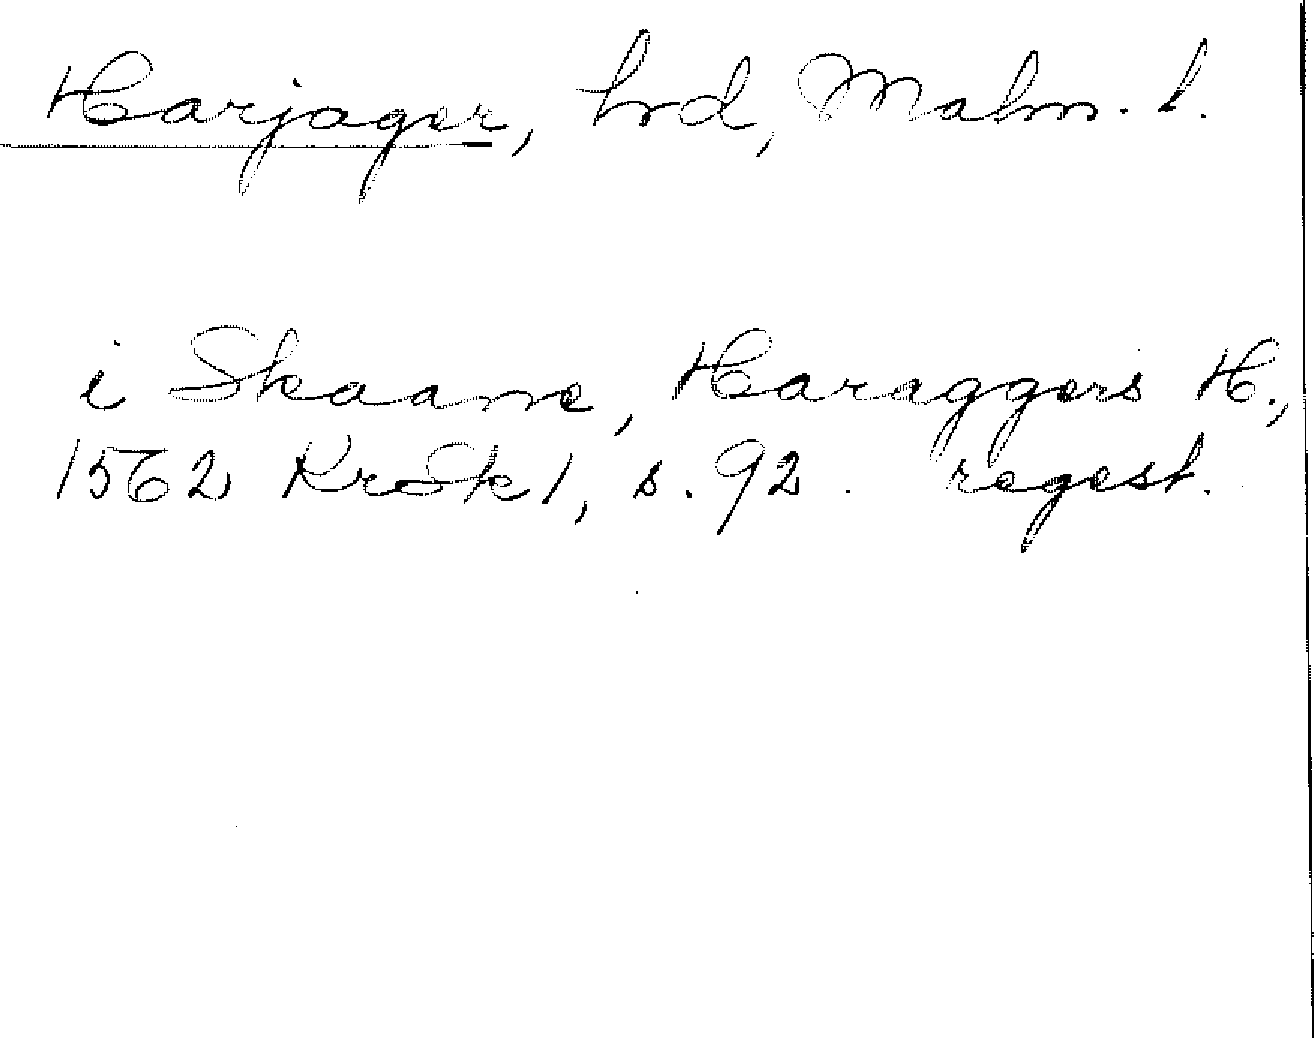 Harjager, hrd, Malm. l.
i Skaane, Haraggers H.,
1562 KrSk 1, s. 92. regest.